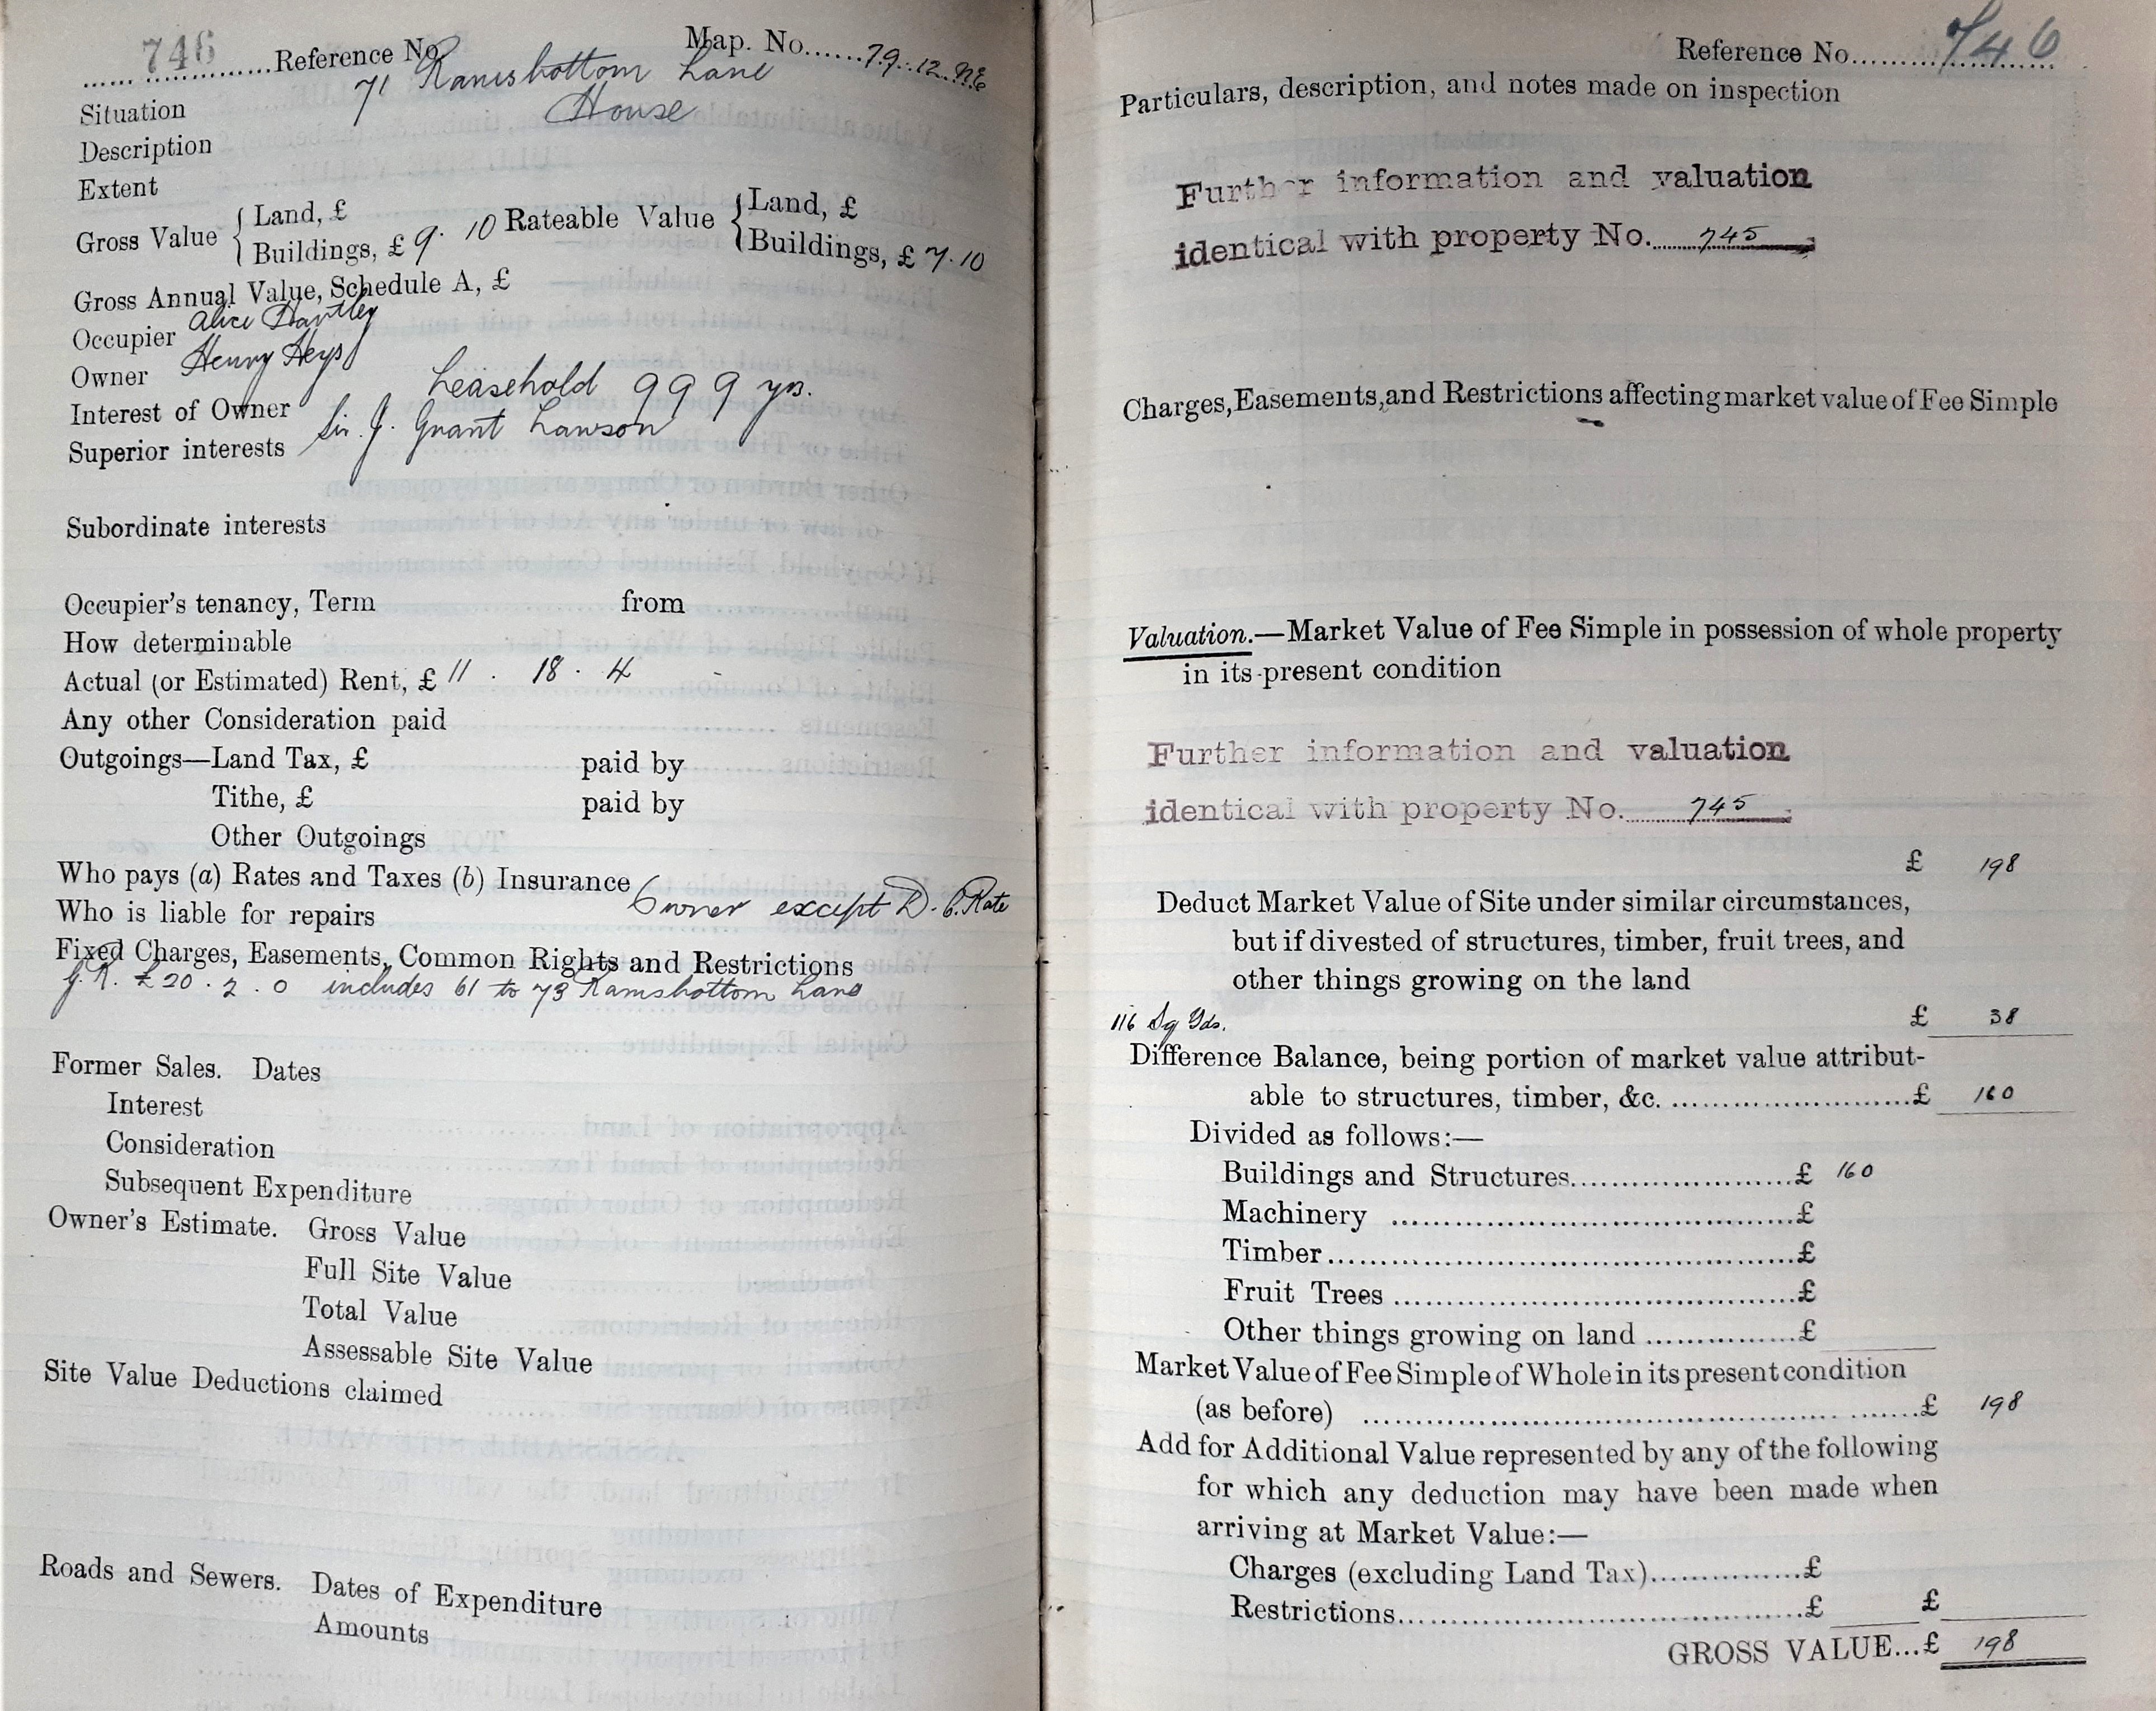 746 Reference No. Map. No. 79.12.NE
Situation 71 Ramsbottom Lane
Description House
Extent
Gross Value { Land, £ Rateable Value { Land, £
Buildings, £ 9.10 Buildings, £ 7.10
Gross Annual Value, Schedule A, £
Occupier Alice Hartley
Owner Henry Heys
Interest of Owner Leasehold 999 yrs.
Superior interests Sir J. Grant Lawson
Subordinate interests
Occupier's tenancy, Term from
How determinable
Actual (or Estimated) Rent, £ 11 . 18 . 4
Any other Consideration paid
Outgoings—Land Tax, £ paid by
Tithe, £ paid by
Other Outgoings
Who pays (a) Rates and Taxes (b) Insurance
Who is liable for repairs Owner except D.C. Rate
Fixed Charges, Easements, Common Rights and Restrictions
G.R. £20.2.0 includes 61 to 73 Ramsbottom Lane
Former Sales. Dates
Interest
Consideration
Subsequent Expenditure
Owner's Estimate. Gross Value
Full Site Value
Total Value
Assessable Site Value
Site Value Deductions claimed
Roads and Sewers. Dates of Expenditure
Amounts
Reference No. 746
Particulars, description, and notes made on inspection
Further information and valuation
identical with property No. 745
Charges, Easements, and Restrictions affecting market value of Fee Simple
Valuation.—Market Value of Fee Simple in possession of whole property
in its present condition
Further information and valuation
identical with property No. 745
£ 198
Deduct Market Value of Site under similar circumstances,
but if divested of structures, timber, fruit trees, and
other things growing on the land
116 Sq Yds. £ 38
Difference Balance, being portion of market value attribut-
able to structures, timber, &c. £ 160
Divided as follows:—
Buildings and Structures £ 160
Machinery £
Timber £
Fruit Trees £
Other things growing on land £
Market Value of Fee Simple of Whole in its present condition
(as before) £ 198
Add for Additional Value represented by any of the following
for which any deduction may have been made when
arriving at Market Value:—
Charges (excluding Land Tax) £
Restrictions £ £
GROSS VALUE...£ 198